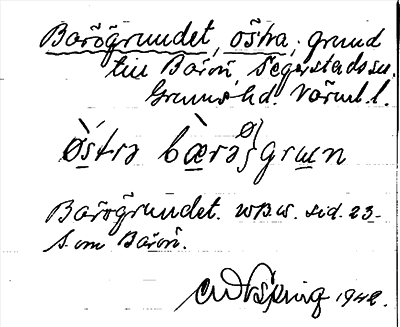 Barögrundet, östra; grund
till Barön, Segerstads sn.
Grums hd. Värml. l.
östrə bærə ø} grun
Barögrundet. WBW. sid. 23.
Som Barön.
1942.